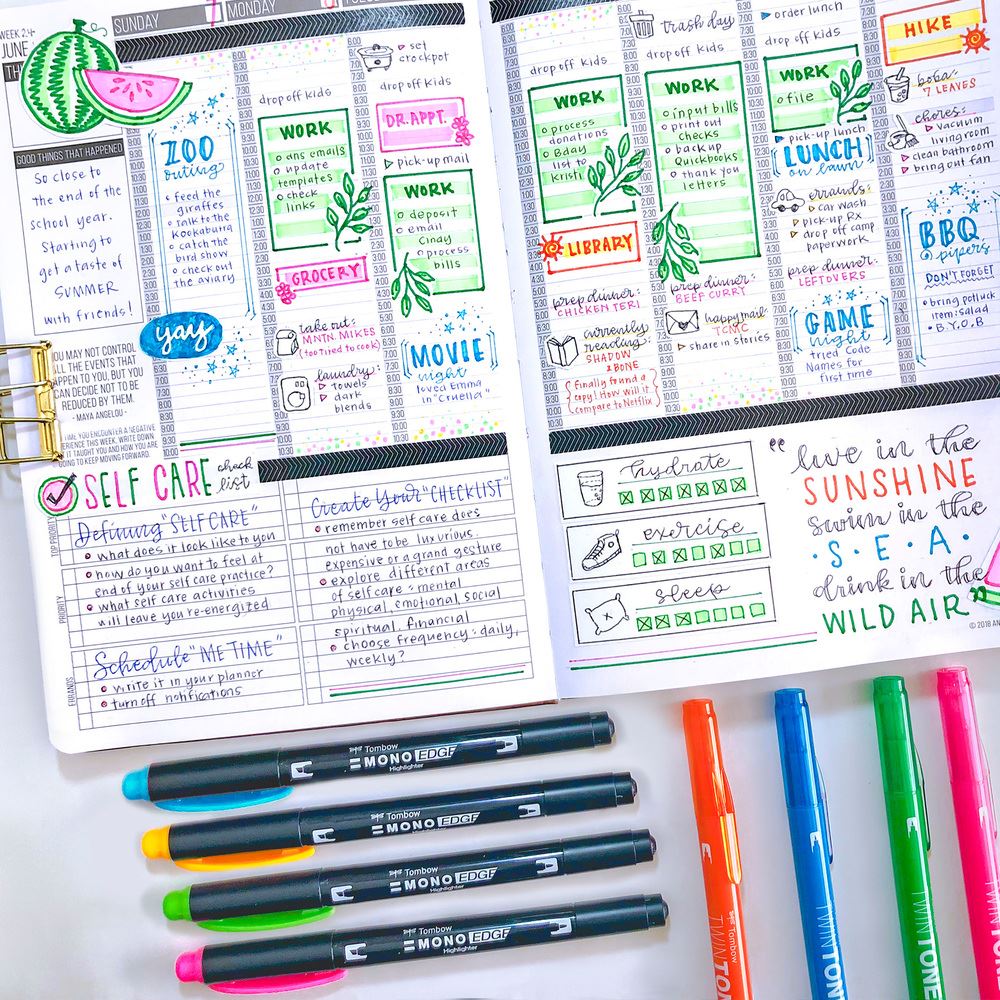 WEEK 24
JUNE
SUNDAY
MONDAY
GOOD THINGS THAT HAPPENED
So close to
the end of the
school year.
Starting to
get a taste of
SUMMER
with friends!
YOU MAY NOT CONTROL
ALL THE EVENTS THAT
HAPPEN TO YOU, BUT YOU
CAN DECIDE NOT TO BE
REDUCED BY THEM.
- MAYA ANGELOU -
TIME YOU ENCOUNTER A NEGATIVE
EXPERIENCE THIS WEEK, WRITE DOWN
IT TAUGHT YOU AND HOW YOU ARE
GOING TO KEEP MOVING FORWARD.
ZOO
outing
feed the
giraffes
talk to the
Kookaburra
catch the
bird show
check out
the aviary
yay
drop off kids
WORK
ans emails
update
templates
check
links
GROCERY
take out:
MNTN. MIKES
(too tired to cook)
laundry:
towels
dark
blends
set
crockpot
drop off kids
DR. APPT.
pick-up mail
WORK
deposit
email
Cindy
process
bills
MOVIE
night
loved Emma
in "Cruella"
drop off kids
WORK
process
donations
Bday
list to
Kristi
LIBRARY
prep dinner:
CHICKEN TERI
currently
reading:
SHADOW
& BONE
finally found a
copy! How will it
compare to Netflix
trash day
drop off kids
WORK
input bills
print out
checks
back up
Quickbooks
thank you
letters
prep dinner:
BEEF CURRY
happy mail:
TCMC
share in stories
order lunch
drop off kids
WORK
file
pick-up lunch
LUNCH
on lawn
errands:
car wash
pick-up Rx
drop off camp
paperwork
prep dinner:
LEFTOVERS
GAME
night
tried Code
Names for
first time
HIKE
boba:
7 LEAVES
chores:
vacuum
living room
clean bathroom
bring out fan
BBQ
pipers
DON'T FORGET
bring potluck
item: salad
B.Y.O.B
SELF CARE check
list
TOP PRIORITY
PRIORITY
ERRANDS
Defining "SELF CARE"
what does it look like to you
how do you want to feel at
end of your self care practice?
what self care activities
will leave you re-energized
Schedule "ME TIME"
write it in your planner
turn off notifications
Create Your "CHECKLIST"
remember self care does
not have to be luxurious.
expensive or a grand gesture
explore different areas
of self care: mental
physical, emotional, social
spiritual, financial
choose frequency: daily,
weekly?
hydrate
exercise
sleep
"live in the
SUNSHINE
swim in the
·S·E·A·
drink in the
WILD AIR"
© 2018
Tombow
MONO EDGE
Highlighter
Tombow
MONO EDGE
Highlighter
Tombow
MONO EDGE
Highlighter
Tombow
MONO EDGE
Highlighter
Tombow
TWINTONE
TWINTONE
TWINTONE
TWINTONE